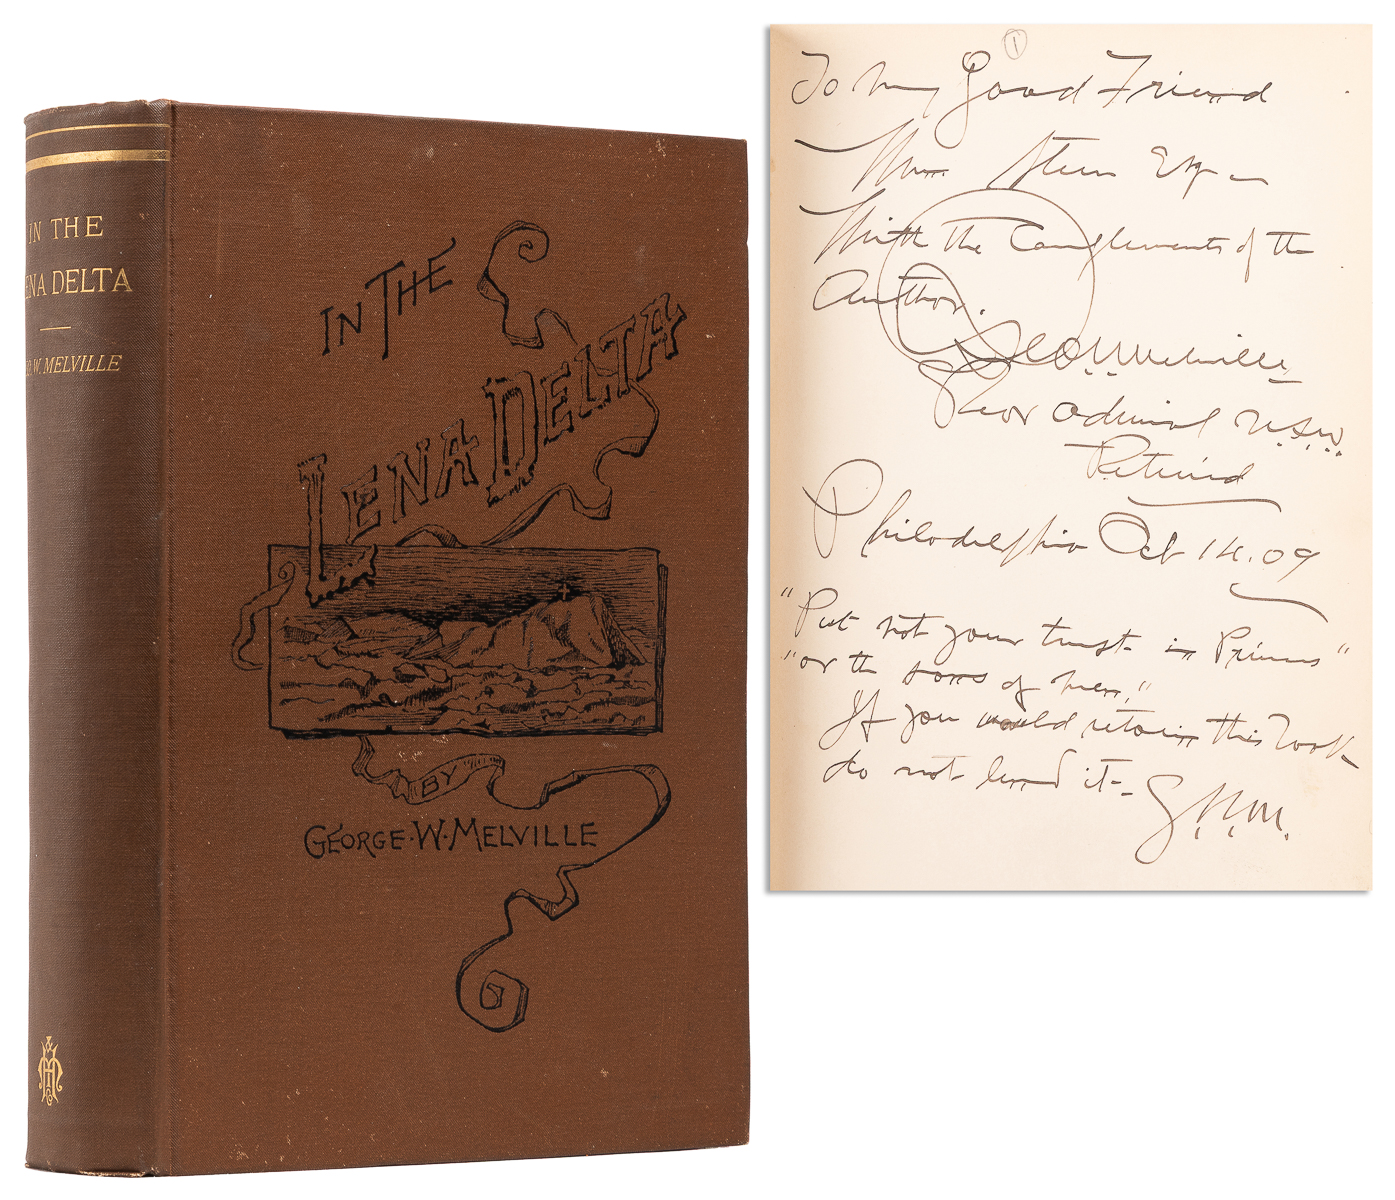 IN THE
ENA DELTA
O. W. MELVILLE
IN THE
LENA DELTA
BY
GEORGE · W · MELVILLE
1
To my Good Friend
Wm. Stein Esq –
With the Complements of the
Author.
Geo. W. Melville,
Rear Admiral U.S.N.
Retired
Philadelphia Oct 14. 09
"Put not your trust in Princes"
"or the sons of men,"
If you would retain this Book
do not lend it –
G.W.M.